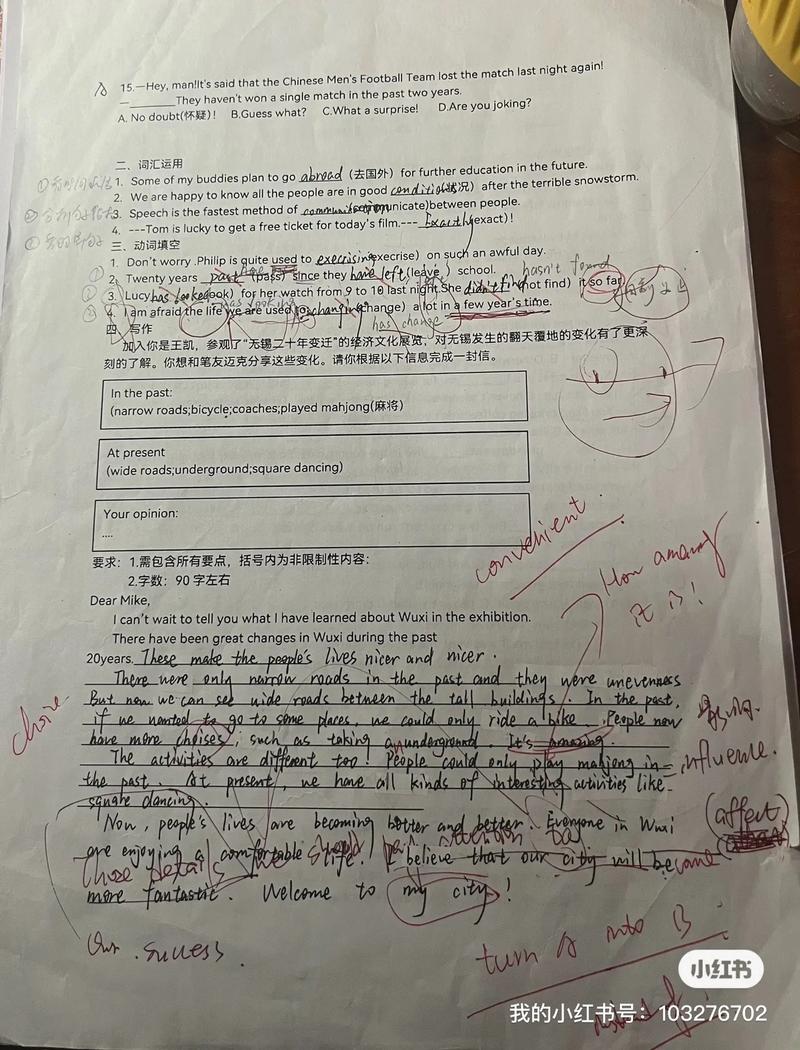 A 15.—Hey, man!It's said that the Chinese Men's Football Team lost the match last night again!
—______They haven't won a single match in the past two years.
A. No doubt(怀疑)! B.Guess what? C.What a surprise! D.Are you joking?
二、词汇运用
1. Some of my buddies plan to go abroad (去国外) for further education in the future.
2. We are happy to know all the people are in good condition(状况) after the terrible snowstorm.
3. Speech is the fastest method of communication municate)between people.
4. ---Tom is lucky to get a free ticket for today's film.--- Exactly exact)!
三、动词填空
1. Don't worry .Philip is quite used to execrising execrise) on such an awful day.
hasn't found
2. Twenty years past (pass) since they have left (leave ) school.
3. Lucy has looked ook) for her watch from 9 to 10 last night.She didn't find not find) it so far
4. I am afraid the life we are used to changing hange) a lot in a few year's time.
has change
四、写作
加入你是王凯，参观了"无锡二十年变迁"的经济文化展览，对无锡发生的翻天覆地的变化有了更深
刻的了解。你想和笔友迈克分享这些变化。请你根据以下信息完成一封信。
In the past:
(narrow roads;bicycle;coaches;played mahjong(麻将)
At present
(wide roads;underground;square dancing)
Your opinion:
....
要求：1.需包含所有要点，括号内为非限制性内容：
2.字数：90 字左右
convenient
How amazing
it is!
Dear Mike,
I can't wait to tell you what I have learned about Wuxi in the exhibition.
There have been great changes in Wuxi during the past
20years. These make the people's lives nicer and nicer.
There were only narrow roads in the past and they were unevenness
But now we can see wide roads between the tall buildings. In the past,
if we wanted to go to some places, we could only ride a bike. People now
影响.
choice
have more choises, such as taking an underground. It's amazing.
influence.
The activities are different too! People could only play mahjong in
the past. At present, we have all kinds of interesting activities like
square dancing.
Now, people's lives are becoming better and better. Everyone in Wuxi
(affect)
are enjoying a comfortable life. I believe that our city will become
those details we should pay attention to
more fantastic. Welcome to my city!
Our success.
turn A into B
instead of
小红书
我的小红书号：103276702